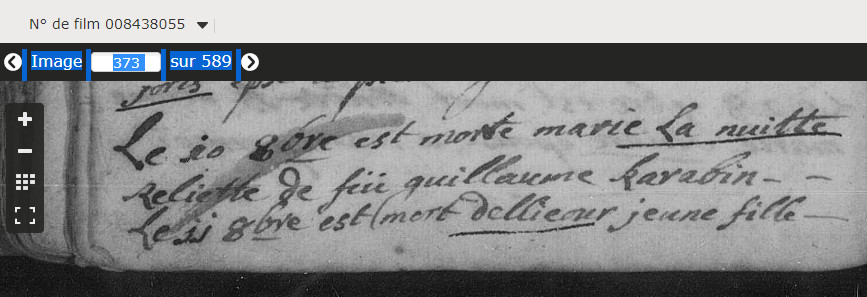 N° de film 008438055
Image 373 sur 589
joris
Le 10 8bre est morte marie La nuitte
Reliette de fiü quillaume Karabin - -
Le 11 8bre est mort dellieour jeune fille —